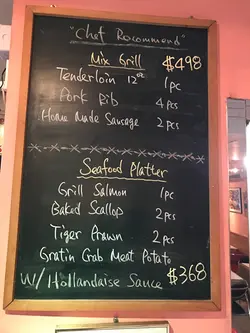 "Chef Rocommend"
Mix Grill $498
Tenderloin 12oz 1pc
Pork Rib 4pcs
Home Made Sausage 2pcs
Seafood Plather
Grill Salmon 1pc
Baked Scallop 2pcs
Tiger Prawn 2pcs
Gratin Crab Meat Potato
W/ Hollandaise Sauce $368